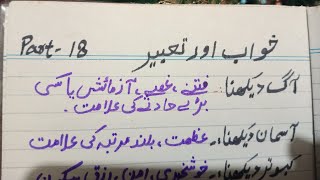 Part-18
خواب اور تعبیر
آگ دیکھنا:- فتنے، غصے، آزمائش یا کسی
بڑے حادثے کی علامت۔
آسمان دیکھنا:- عظمت، بلند مرتبہ کی علامت
کبوتر دیکھنا:- خوشخبری، امن